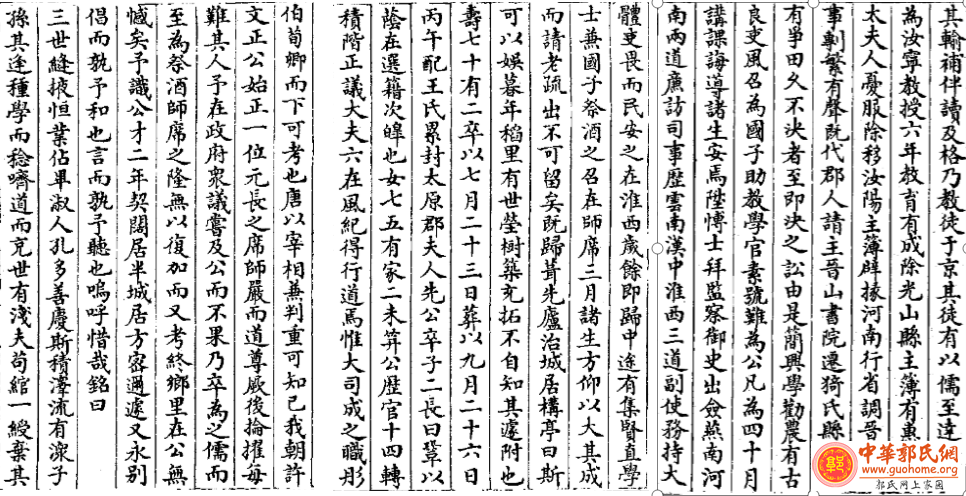 其輸補伴讀及格乃教徒于京其徒有以儒至達
為汝寧教授六年教育有成除光山縣主薄有惠
太夫人憂服除移汝陽主薄辟掾河南行省調晉
事剸繁有聲既代郡人請主晉山書院遷猗氏縣
有爭田久不決者至即決之訟由是簡興學勸農有古
良吏風召為國子助教學官素號難為公凡為四十月
講課誨導諸生安焉陞博士拜監察御史出僉燕南河
南兩道廉訪司事歷雲南漢中淮西三道副使務持大
體吏畏而民安之在淮西歲餘即歸中途有集賢直學
士兼國子祭酒之召在師席三月諸生方仰以大其成
而請老疏出不可留矣既歸葺先廬治城居構亭曰斯
可以娛暮年稻里有世塋樹築充拓不自知其遽附也
壽七十有二卒以七月二十三日葬以九月二十六日
丙午配王氏累封太原郡夫人先公卒子二長曰鞏以
蔭在選籍次皥也女七五有家二未筓公歷官十四轉
積階正議大夫六在風紀得行道焉惟大司成之職彤
伯荀卿而下可考也唐以宰相兼判重可知已我朝許
文正公始正一位元長之席師嚴而道尊厥後掄擢每
難其人予在政府衆議嘗及公而不果乃卒為之儒而
至為祭酒師席之隆無以復加而又考終鄉里在公無
憾矣予識公才二年契闊居半城居方密邇遽又永别
倡而孰予和也言而孰予聽也嗚呼惜哉銘曰
三世縫掖恒業佔畢淑人孔多善慶斯積澤流有深子
孫其逢種學而稔嚌道而充世有淺夫苟綰一綬棄其
中華郭氏網
www.guohome.org
郭氏网上家園